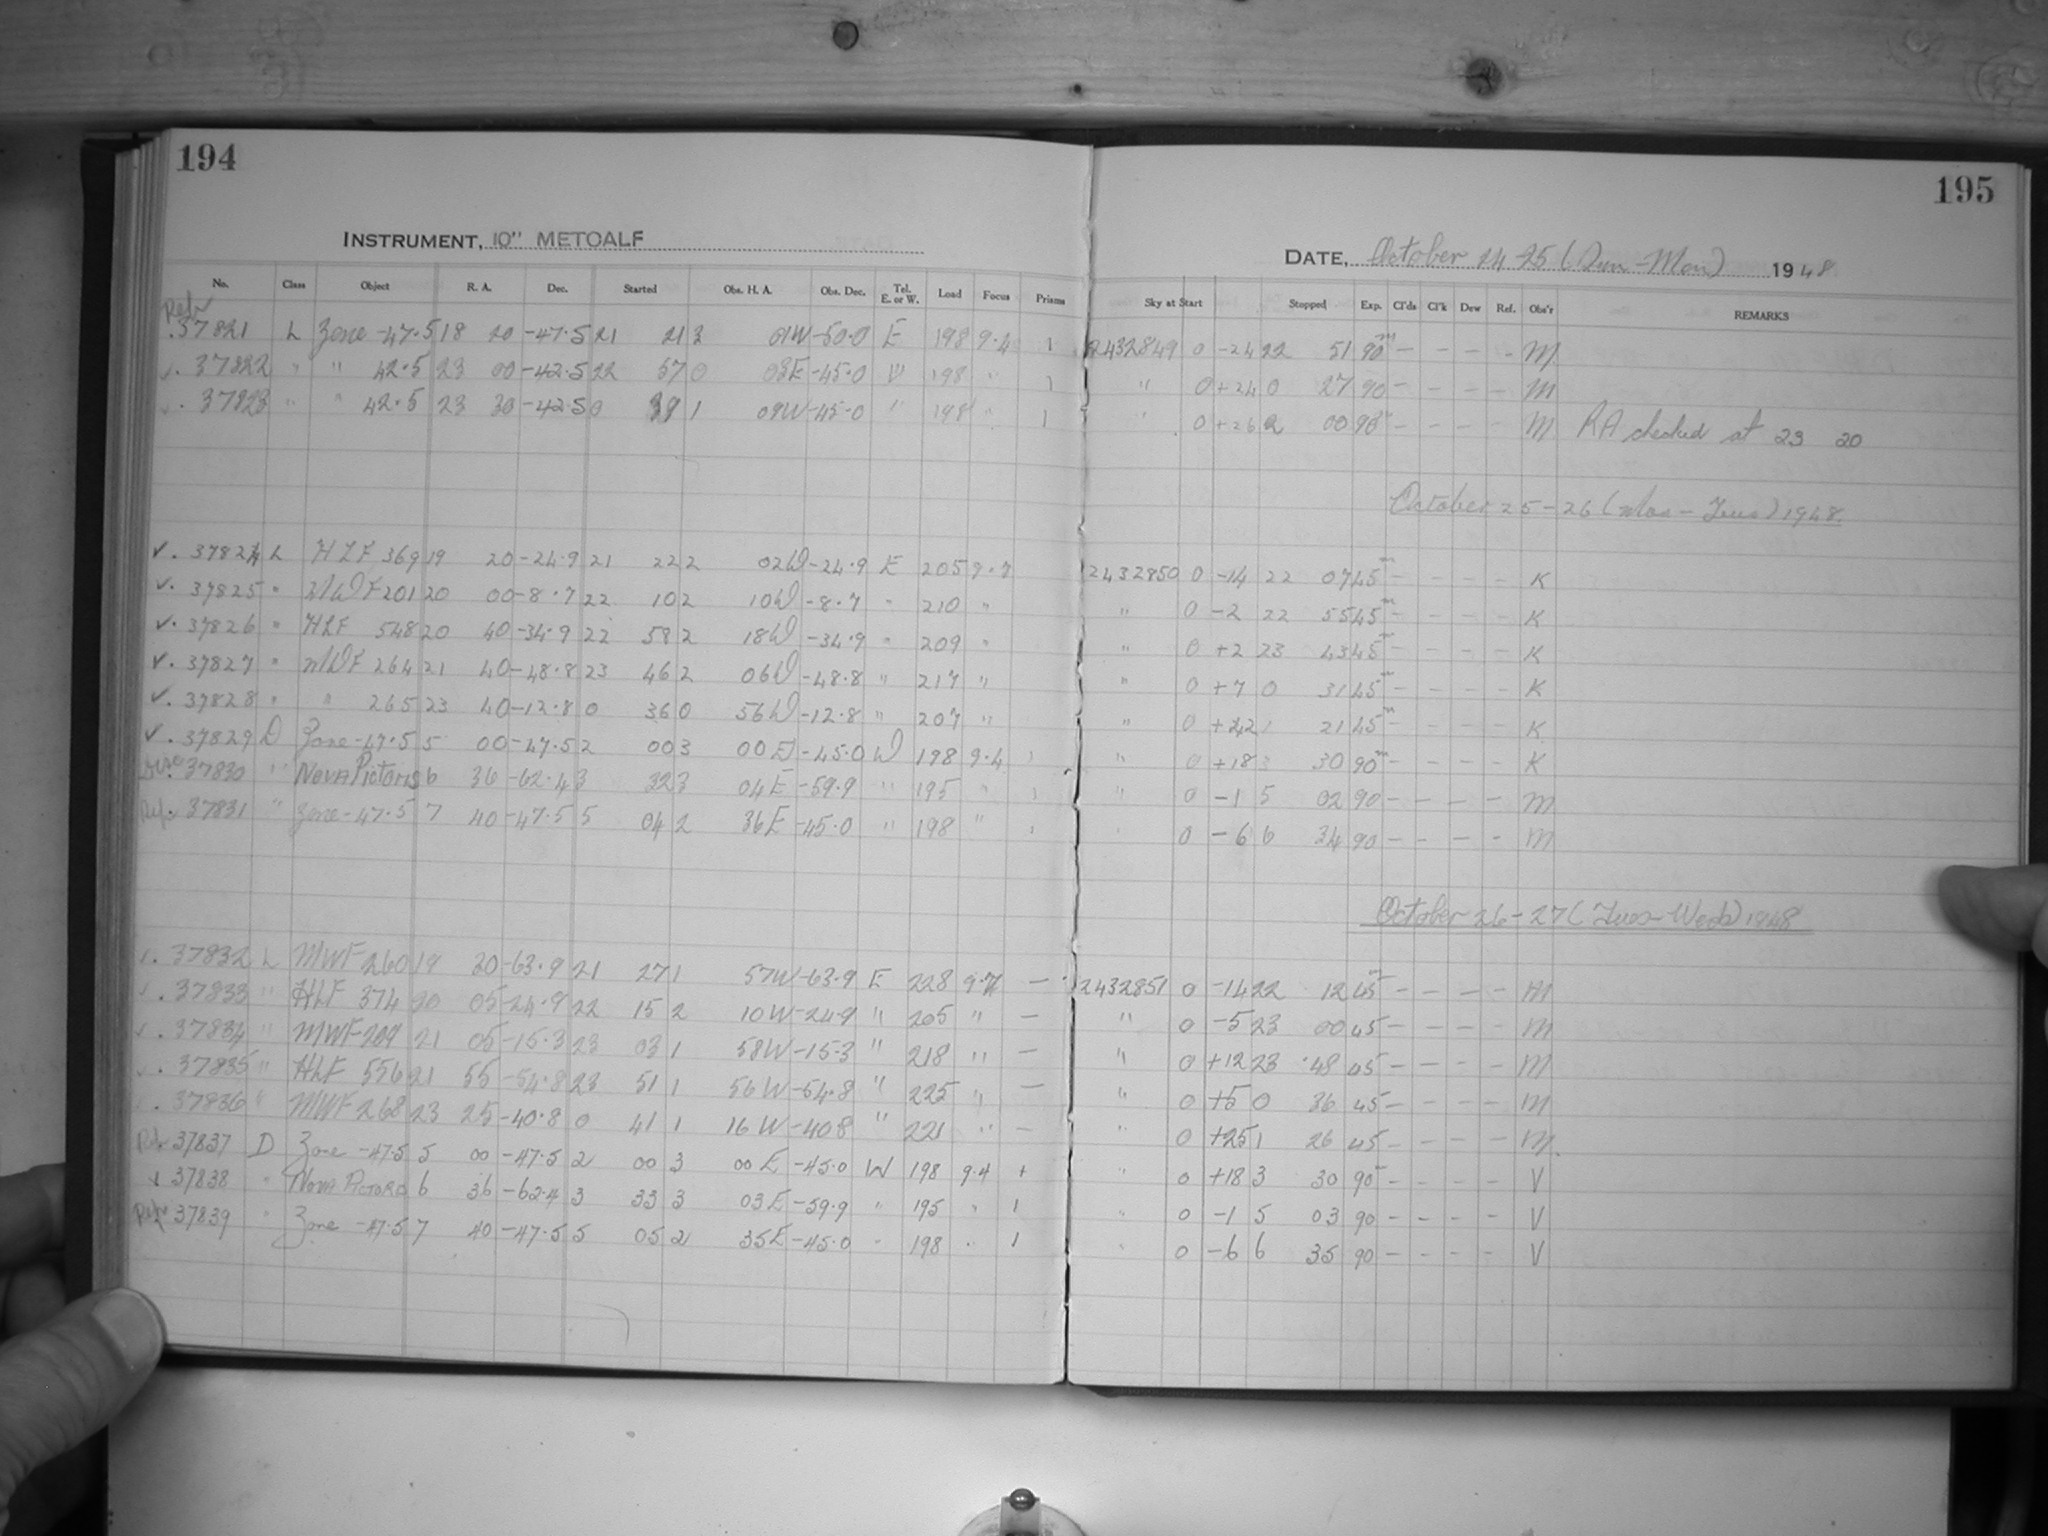 194
195
INSTRUMENT, 10" METCALF
DATE, October 24-25 (Sun-Mon) 1948
No. Class Object R. A. Dec. Started Obs. H. A. Obs. Dec. Tel. E. or W. Load Focus Prisms Sky at Start Stopped Exp. Cl'ds Cl'k Dew Ref. Obs'r REMARKS
37821 L Zone -47.5 18 20 -47.5 21 21 3 01W -50.0 E 198 9.4 1 2432849 0 -24 22 51 90m - - - - M
37822 " " 42.5 23 00 -42.5 22 57 0 03E -45.0 W 198 " 1 " 0 +24 0 27 90 - - - - M
37823 " " 42.5 23 30 -42.5 0 39 1 09W -45.0 " 198 " 1 " 0 +26 2 00 90 - - - - M RA checked at 23 20
October 25-26 (Mon-Tues) 1948.
✓. 37824 L HLF 369 19 20 -24.9 21 22 2 02W -24.9 E 205 9.7 2432850 0 -14 22 07 45m - - - - K
✓. 37825 " MWF 201 20 00 -8.7 22 10 2 10W -8.7 " 210 " " 0 -2 22 55 45m - - - - K
✓. 37826 " HLF 548 20 40 -34.9 22 58 2 18W -34.9 " 209 " " 0 +2 23 43 45m - - - - K
✓. 37827 " MWF 264 21 40 -48.8 23 46 2 06W -48.8 " 217 " " 0 +7 0 31 45m - - - - K
✓. 37828 " " 265 23 40 -12.8 0 36 0 56W -12.8 " 207 " " 0 +42 1 21 45m - - - - K
✓. 37829 D Zone -47.5 5 00 -47.5 2 00 3 00E -45.0 W 198 9.4 1 " 0 +18 3 30 90m - - - - K
37830 " NOVA Pictoris 6 36 -62.4 3 32 3 04E -59.9 " 195 " 1 " 0 -1 5 02 90 - - - - M
37831 " Zone -47.5 7 40 -47.5 5 04 2 36E -45.0 " 198 " 1 " 0 -6 6 34 90 - - - - M
October 26-27 (Tues-Weds) 1948
✓. 37832 L MWF 260 19 20 -63.9 21 27 1 57W -63.9 E 228 9.7 - 2432851 0 -14 22 12 45m - - - - M
✓. 37833 " HLF 374 20 05 -24.9 22 15 2 10W -24.9 " 205 " - " 0 -5 23 00 45 - - - - M
✓. 37834 " MWF 209 21 05 -15.3 23 03 1 58W -15.3 " 218 " - " 0 +12 23 48 45 - - - - M
✓. 37835 " HLF 556 21 55 -54.8 23 51 1 56W -54.8 " 225 " - " 0 +5 0 36 45 - - - - M
. 37836 " MWF 268 23 25 -40.8 0 41 1 16W -40.8 " 221 " - " 0 +25 1 26 45 - - - - M
37837 D Zone -47.5 5 00 -47.5 2 00 3 00E -45.0 W 198 9.4 + " 0 +18 3 30 90m - - - - V
37838 " NOVA PICTORIS 6 36 -62.4 3 33 3 03E -59.9 " 195 " 1 " 0 -1 5 03 90 - - - - V
37839 " Zone -47.5 7 40 -47.5 5 05 2 35E -45.0 " 198 " 1 " 0 -6 6 35 90 - - - - V